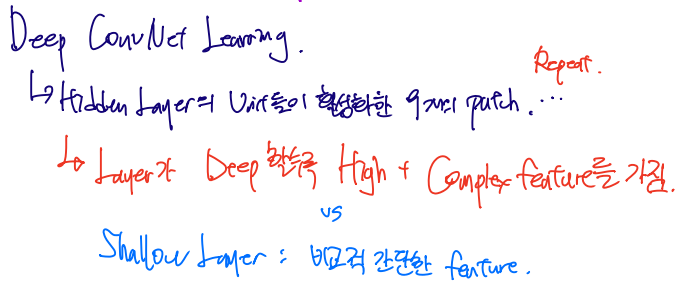 Deep ConvNet Learning.
Repeat.
↳ Hidden Layer의 Unit들이 활성화한 9개의 patch. ...
↳ Layer가 Deep 할수록 High + Complex feature를 가짐.
vs
Shallow Layer : 비교적 간단한 feature.